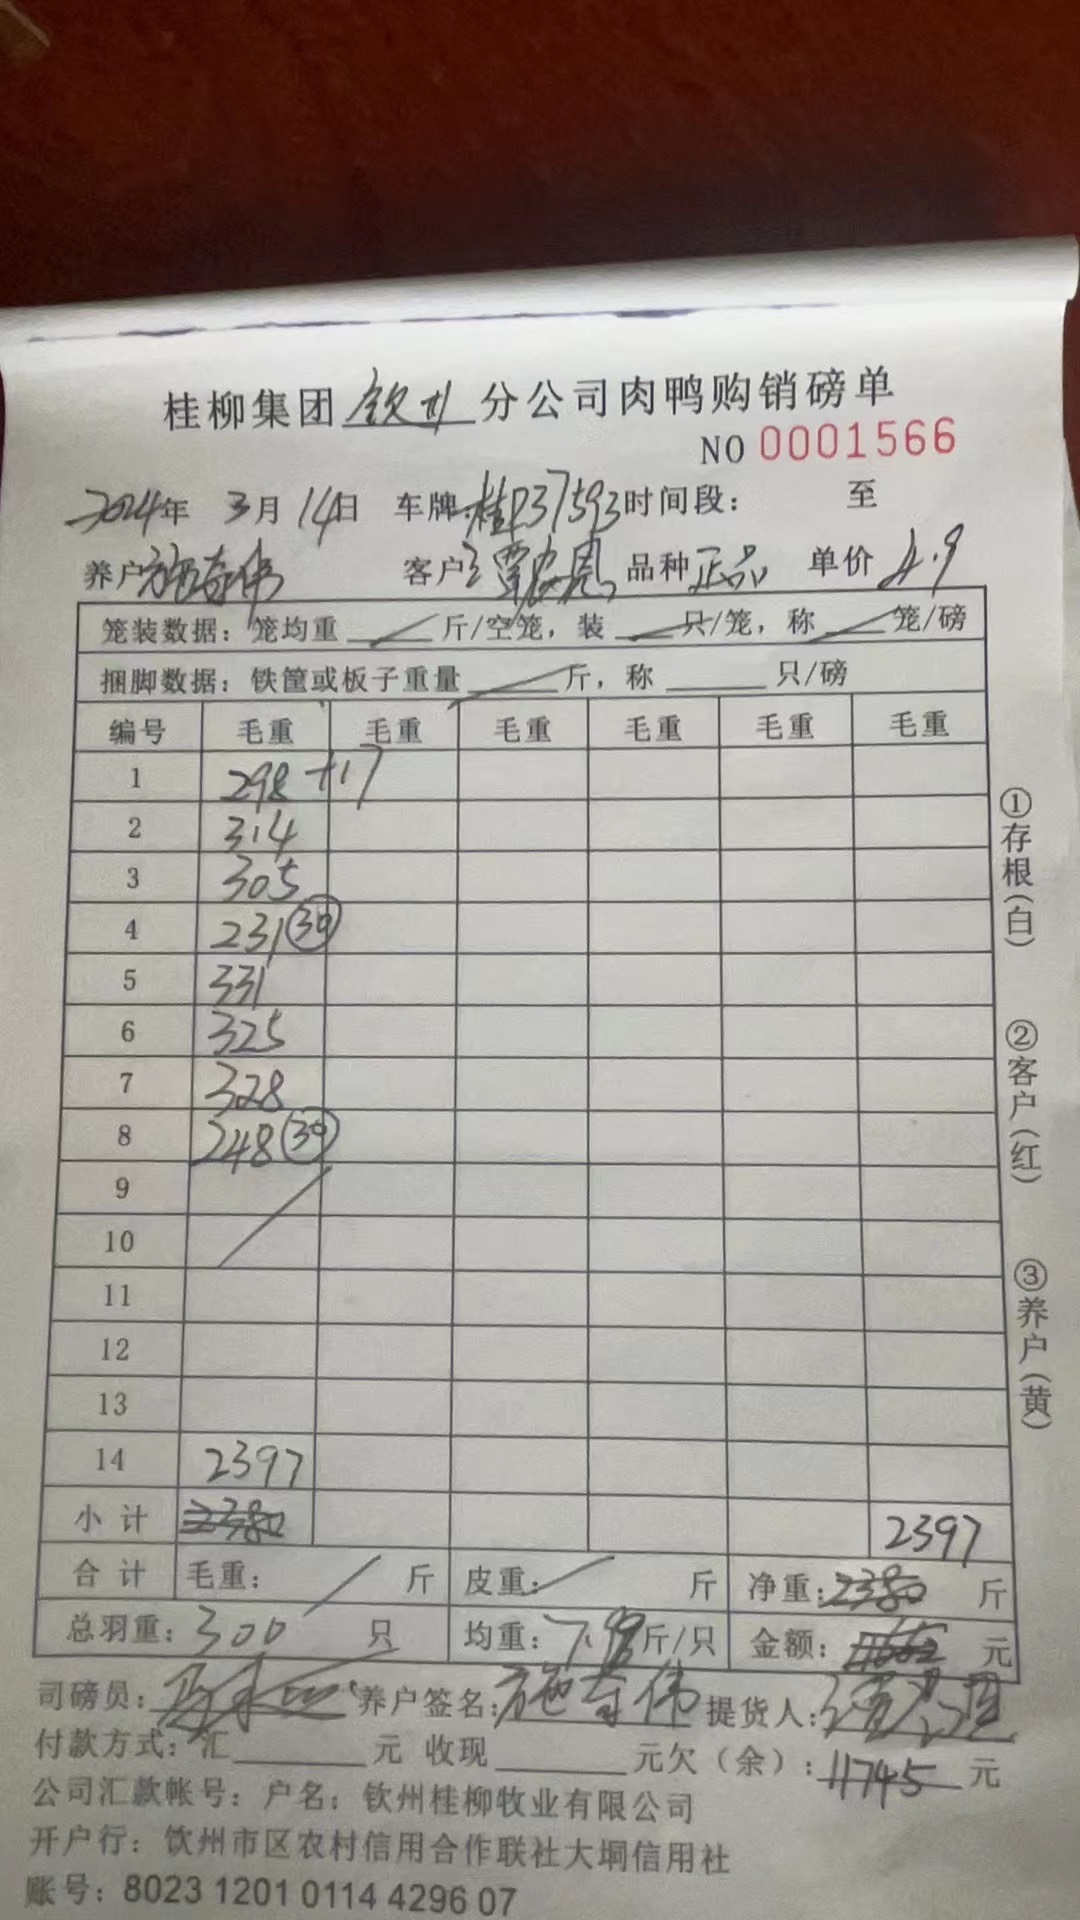 桂柳集团钦州分公司肉鸭购销磅单
NO 0001566
2024年 3月14日 车牌:桂P37593时间段: 至
养户施奇伟 客户 品种正品 单价4.9
笼装数据: 笼均重 斤/空笼, 装 只/笼, 称 笼/磅
捆脚数据: 铁筐或板子重量 斤, 称 只/磅
编号 毛重 毛重 毛重 毛重 毛重 毛重
1 298 +17
2 314
3 305
4 231 30
5 331
6 325
7 328
8 248 30
9
10
11
12
13
14 2397
小计 2380 2397
合计 毛重: 斤 皮重: 斤 净重:2380 斤
总羽重: 300 只 均重: 7.99斤/只 金额: 元
司磅员: 养户签名:施奇伟 提货人:
付款方式: 汇 元 收现 元欠(余):11745 元
公司汇款帐号: 户名: 钦州桂柳牧业有限公司
开户行: 钦州市区农村信用合作联社大垌信用社
账号: 8023 1201 0114 4296 07
①存根(白)
②客户(红)
③养户(黄)